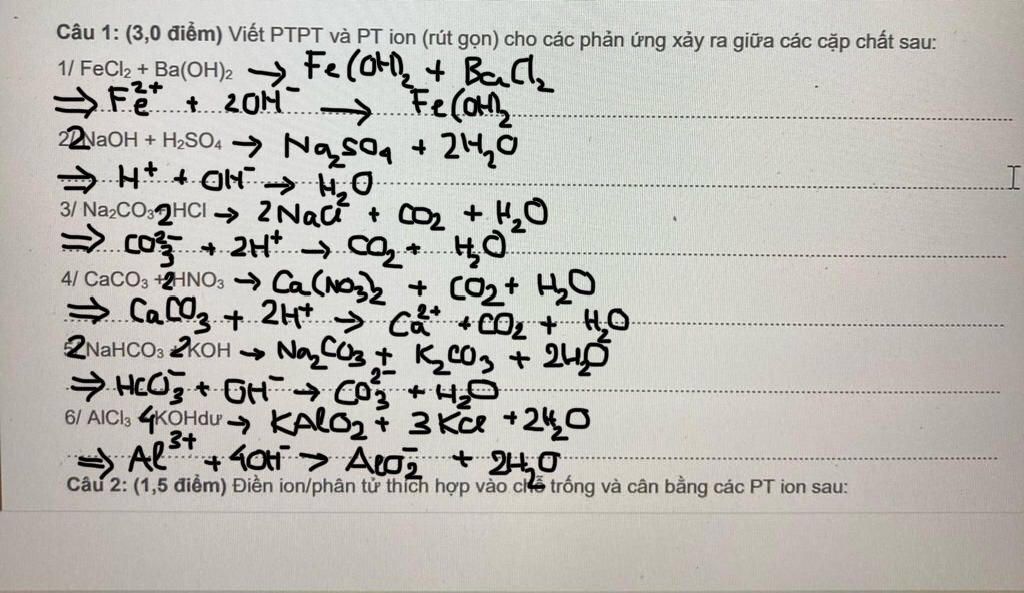 Câu 1: (3,0 điểm) Viết PTPT và PT ion (rút gọn) cho các phản ứng xảy ra giữa các cặp chất sau:
1/ FeCl₂ + Ba(OH)₂ → Fe(OH)₂ + BaCl₂
⇒ Fe²⁺ + 2OH⁻ → Fe(OH)₂
2/ 2NaOH + H₂SO₄ → Na₂SO₄ + 2H₂O
⇒ H⁺ + OH⁻ → H₂O
3/ Na₂CO₃ + 2HCl → 2NaCl + CO₂ + H₂O
⇒ CO₃²⁻ + 2H⁺ → CO₂ + H₂O
4/ CaCO₃ + 2HNO₃ → Ca(NO₃)₂ + CO₂ + H₂O
⇒ CaCO₃ + 2H⁺ → Ca²⁺ + CO₂ + H₂O
5/ 2NaHCO₃ + 2KOH → Na₂CO₃ + K₂CO₃ + 2H₂O
⇒ HCO₃⁻ + OH⁻ → CO₃²⁻ + H₂O
6/ AlCl₃ + 4KOHdư → KAlO₂ + 3KCl + 2H₂O
⇒ Al³⁺ + 4OH⁻ → AlO₂⁻ + 2H₂O
Câu 2: (1,5 điểm) Điền ion/phân tử thích hợp vào chỗ trống và cân bằng các PT ion sau: